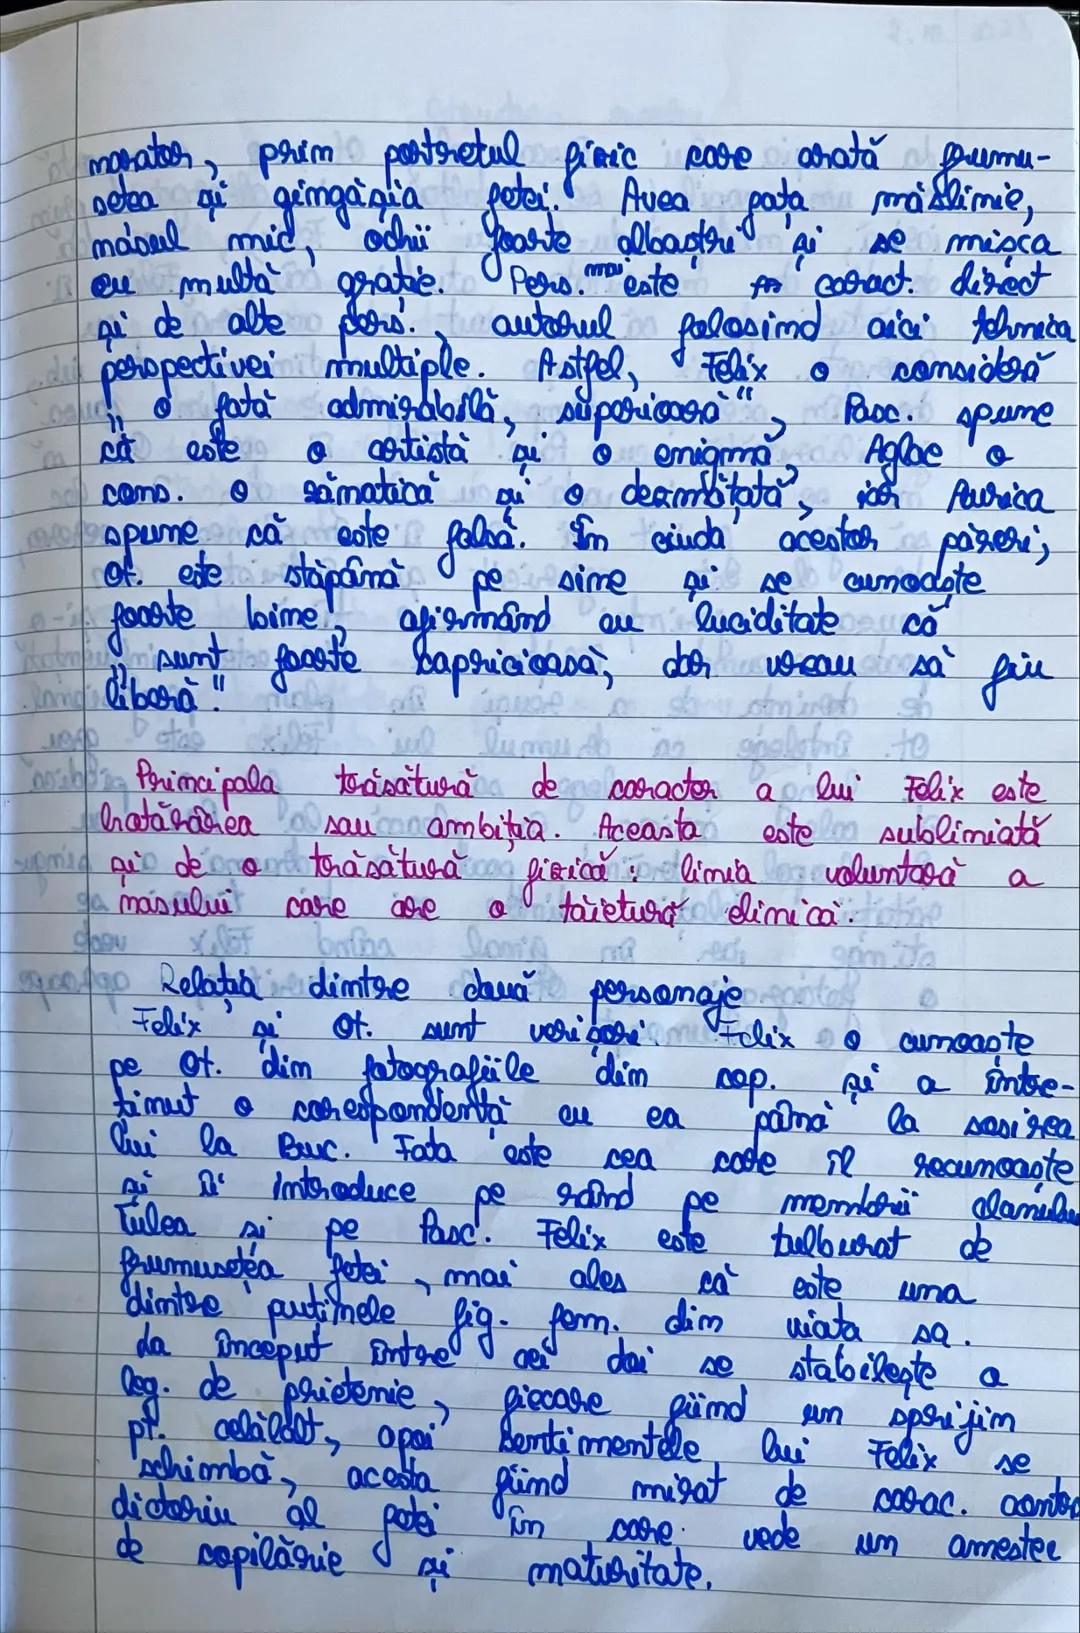 narator, prim portretul fizic care arată frumu-
sețea și gingășia fetei. Avea fața măslinie,
năsul mic, ochii foarte albaștri și se mișca
cu multă grație. Pers. mai este caract. direct
și de alte pers., autorul folosind aici tehnica
perspectivei multiple. Astfel, Felix o consideră
„o fată admirabilă, superioară", Pasc. spune
că este o artistă și o enigmă, Aglae o
cons. o zănatică și o dezmățată, iar Aurica
spune că este falsă. În ciuda acestor păreri,
Ot. este stăpână pe sine și se cunoaște
foarte bine, afirmând cu luciditate că
„sunt foarte capricioasă, dar vreau să fiu
liberă".
Principala trăsătură de caracter a lui Felix este
hotărârea sau ambiția. Aceasta este subliniată
și de o trăsătură fizică: linia voluntară a
nasului care are o tăietură elinică.
Relația dintre două personaje
Felix și Ot. sunt verișori. Felix o cunoaște
pe Ot. din fotografiile din cop. și a între-
ținut o corespondență cu ea până la sosirea
lui la Buc. Fata este cea care îl recunoaște
și îl introduce pe rând pe membrii clanului
Tulea si pe Pasc. Felix este tulburat de
frumusețea fetei, mai ales că este una
dintre puținele fig. fem. din viata sa.
La început între cei doi se stabilește o
leg. de prietenie, fiecare fiind un sprijin
pt. celălalt, apoi sentimentele lui Felix se
schimbă, acesta fiind mirat de carac. contra
dictoriu al fetei în care vede un amestec
de copilărie și maturitate.